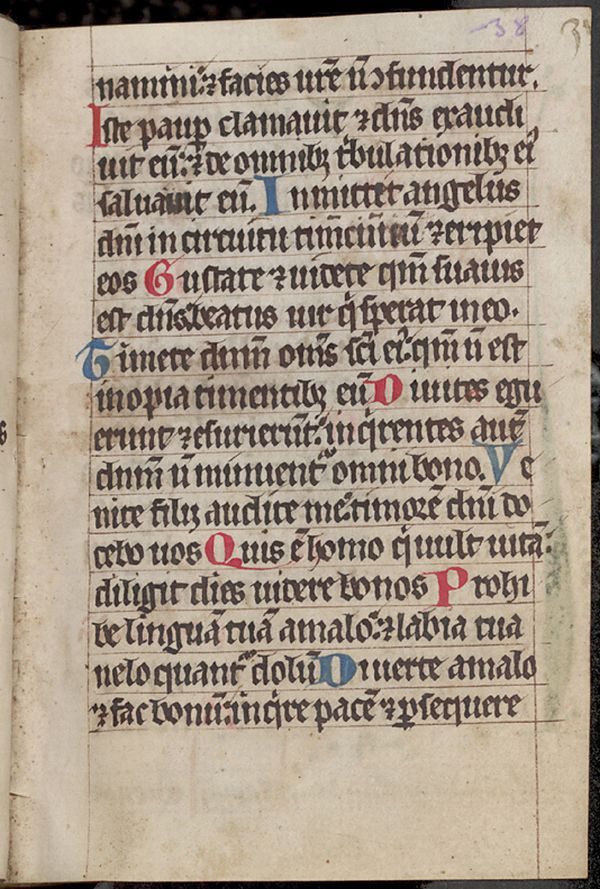 38
namini: ⁊ facies ur̄e n̄ ꝯfundentur.
Iste paup̱ clamauit ⁊ dn̄s exaudi
uit eū: ⁊ de omnibꝫ t'bulationibꝫ ei᾿
saluauit eū. Inmittet angelus
dn̄i in circuitu tim̄ciū ⁊ eripiet
eos Gustate ⁊ uidete qm̄ suauis
est dn̄s: beatus uir q' sperat in eo.
Timete dn̄m om̄s sc̄i ei᾿: qm̄ n̄ est
inopia timentibꝫ eū Diuites egu
erunt ⁊ esurierūt: inq'rentes aut̄
dn̄m n̄ minuent᾿ omni bono. Ve
nite filij audite me: timorē dn̄i do
cebo uos Quis ē homo q' uult uitā:
diligit dies uidere bonos Prohi
be linguā tuā a malo: ⁊ labia tua
ne loquant᾿ dolū Diuerte a malo
⁊ fac bonū: inq're pacē ⁊ ꝑsequere